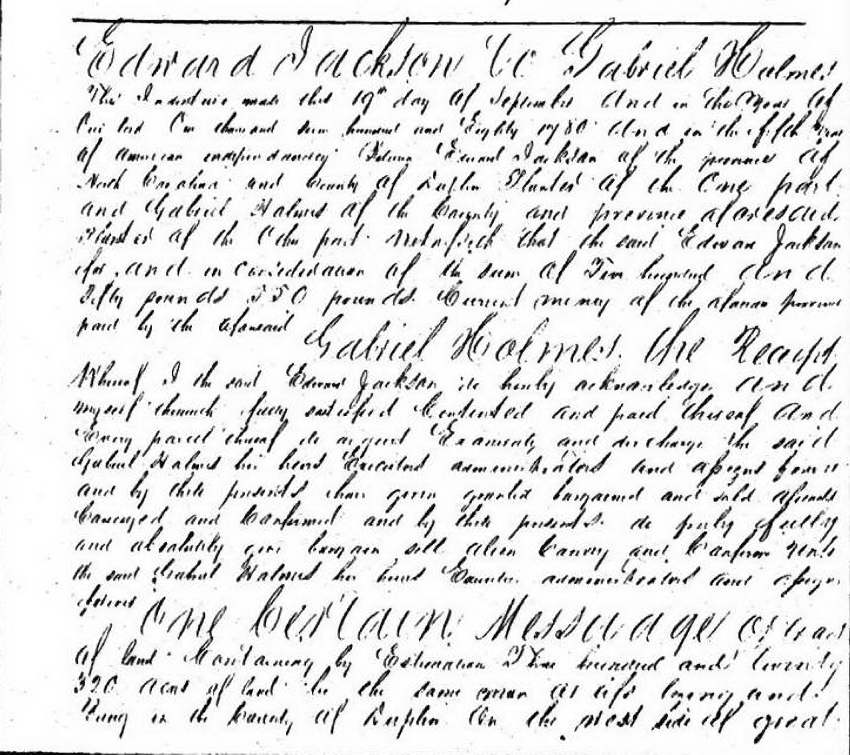 Edward Jackson to Gabriel Holmes
This Indenture made this 19th day of September and in the Year of
Our Lord One thousand seven hundred and Eighty 1780 and in the fifth Year
of American independancy Between Edward Jackson of the province of
North Carolina and County of Duplin Planter of the One part
and Gabriel Holmes of the County and province aforesaid
Planter of the Other part Witnesseth that the said Edward Jackson
for and in consideration of the sum of Five hundred and
Fifty pounds 550 pounds Current money of the province
paid by the aforesaid Gabriel Holmes the Receipt
Whereof I the said Edward Jackson do hereby acknowledge and
myself therewith fully satisfied Contented and paid thereof and
Every parcel thereof do acquit Exonerate and discharge the said
Gabriel Holmes his heirs Executors administrators and assigns forever
and by these presents have given granted bargained and sold
Conveyed and Confirmed and by these presents do fully
and absolutely give bargain sell alien Convey and Confirm unto
the said Gabriel Holmes his heirs administrators and assigns
forever One Certain Messuage or tract
of land Containing by Estimation Three hundred and twenty
320 acres of land be the same more or less being and
lying in the County of Duplin On the west side of great